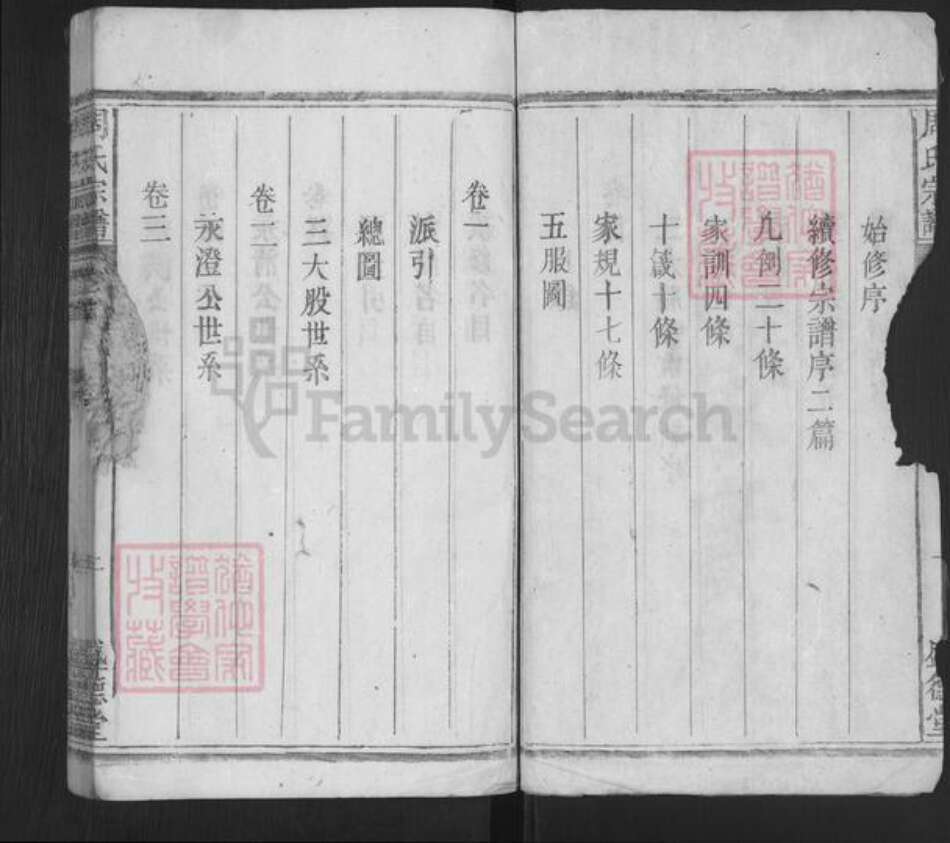 周氏宗譜
始修序
續修宗譜序二篇
凡例二十條
家訓四條
十箴十條
家規十七條
五服圖
盛德堂
卷一
派引
總圖
三大股世系
卷二
永澄公世系
卷三
周氏宗譜
盛德堂
FamilySearch